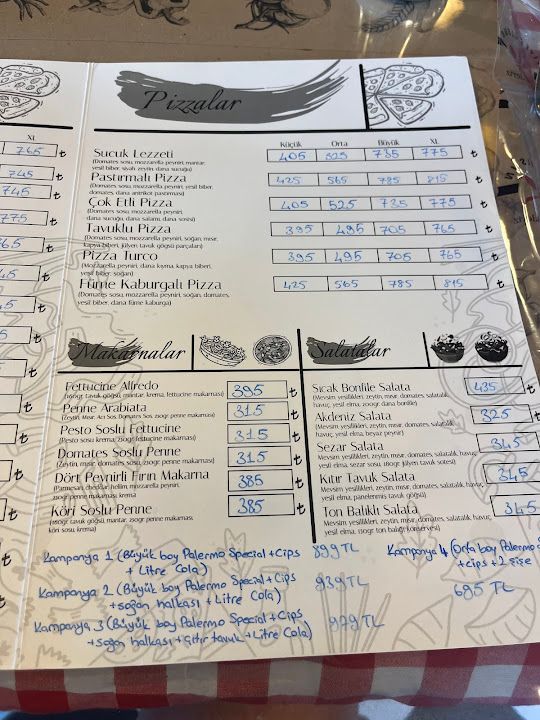 Pizzalar
XL
765 ₺
745 ₺
745 ₺
775 ₺
Küçük Orta Büyük XL
Sucuk Lezzeti 405 525 735 775 ₺
(Domates sosu, mozzarella peyniri, mantar,
yeşil biber, siyah zeytin, dana sucuğu)
Pastırmalı Pizza 425 565 785 815 ₺
(Domates sosu, mozzarella peyniri, yeşil biber,
domates, dana antrikot pastırması)
Çok Etli Pizza 405 525 735 775 ₺
(Domates sosu, mozzarella peyniri,
dana sucuğu, dana salamı, dana sosisi)
Tavuklu Pizza 395 495 705 765 ₺
(Domates sosu, mozzarella peyniri, soğan, mısır,
kapya biberi, jülyen tavuk göğsü parçaları)
Pizza Turco 395 495 705 765 ₺
(Mozzarella peyniri, dana kıyma, kapya biberi,
yeşil biber, soğan)
Füme Kaburgalı Pizza 425 565 785 815 ₺
(Domates sosu, mozzarella peyniri, soğan, domates,
yeşil biber, dana füme kaburga)
Makarnalar
Fettucine Alfredo 395 ₺
(150gr. tavuk göğsü, mantar, krema, fettucine makarnası)
Penne Arabiata 315 ₺
(Zeytin, Mısır, Acı Sos, Domates Sos, 250gr penne makarnası)
Pesto Soslu Fettucine 315 ₺
(Pesto sosu, krema, 250gr fettucine makarnası)
Domates Soslu Penne 315 ₺
(Zeytin, mısır, domates sosu, 250gr. penne makarnası)
Dört Peynirli Fırın Makarna 385 ₺
(Parmesan, cheddar, hellim, mozzarella peyniri,
250gr. penne makarnası, krema)
Köri Soslu Penne 385 ₺
(150gr tavuk göğsü, mantar, 250gr penne makarnası,
köri sosu, krema)
Salatalar
Sıcak Bonfile Salata 435
(Mevsim yeşillikleri, zeytin, mısır, domates, salatalık,
havuç, yeşil elma, 200gr dana bonfile)
Akdeniz Salata 325 ₺
(Mevsim yeşillikleri, zeytin, mısır, domates, salatalık,
havuç, yeşil elma, beyaz peynir)
Sezar Salata 345 ₺
Mevsim yeşillikleri, zeytin, mısır, domates, salatalık, havuç,
yeşil elma, sezar sosu, 180gr jülyen tavuk sotesi)
Kıtır Tavuk Salata 345 ₺
Mevsim yeşillikleri, zeytin, mısır, domates, salatalık, havuç,
yeşil elma, panelenmiş tavuk göğsü)
Ton Balıklı Salata 345
Mevsim yeşillikleri, zeytin, mısır, domates, salatalık, havuç,
yeşil elma, 150gr ton balığı konservesi)
Kampanya 1 (Büyük boy Palermo Special + Cips 899 TL
+ Litre Cola)
Kampanya 2 (Büyük boy Palermo Special + Cips 939 TL
+ soğan halkası + Litre Cola)
Kampanya 3 (Büyük boy Palermo Special + Cips 979 TL
+ soğan halkası + çıtır tavuk + Litre Cola)
Kampanya 4 (Orta boy Palermo
+ cips + 2 şişe
685 TL